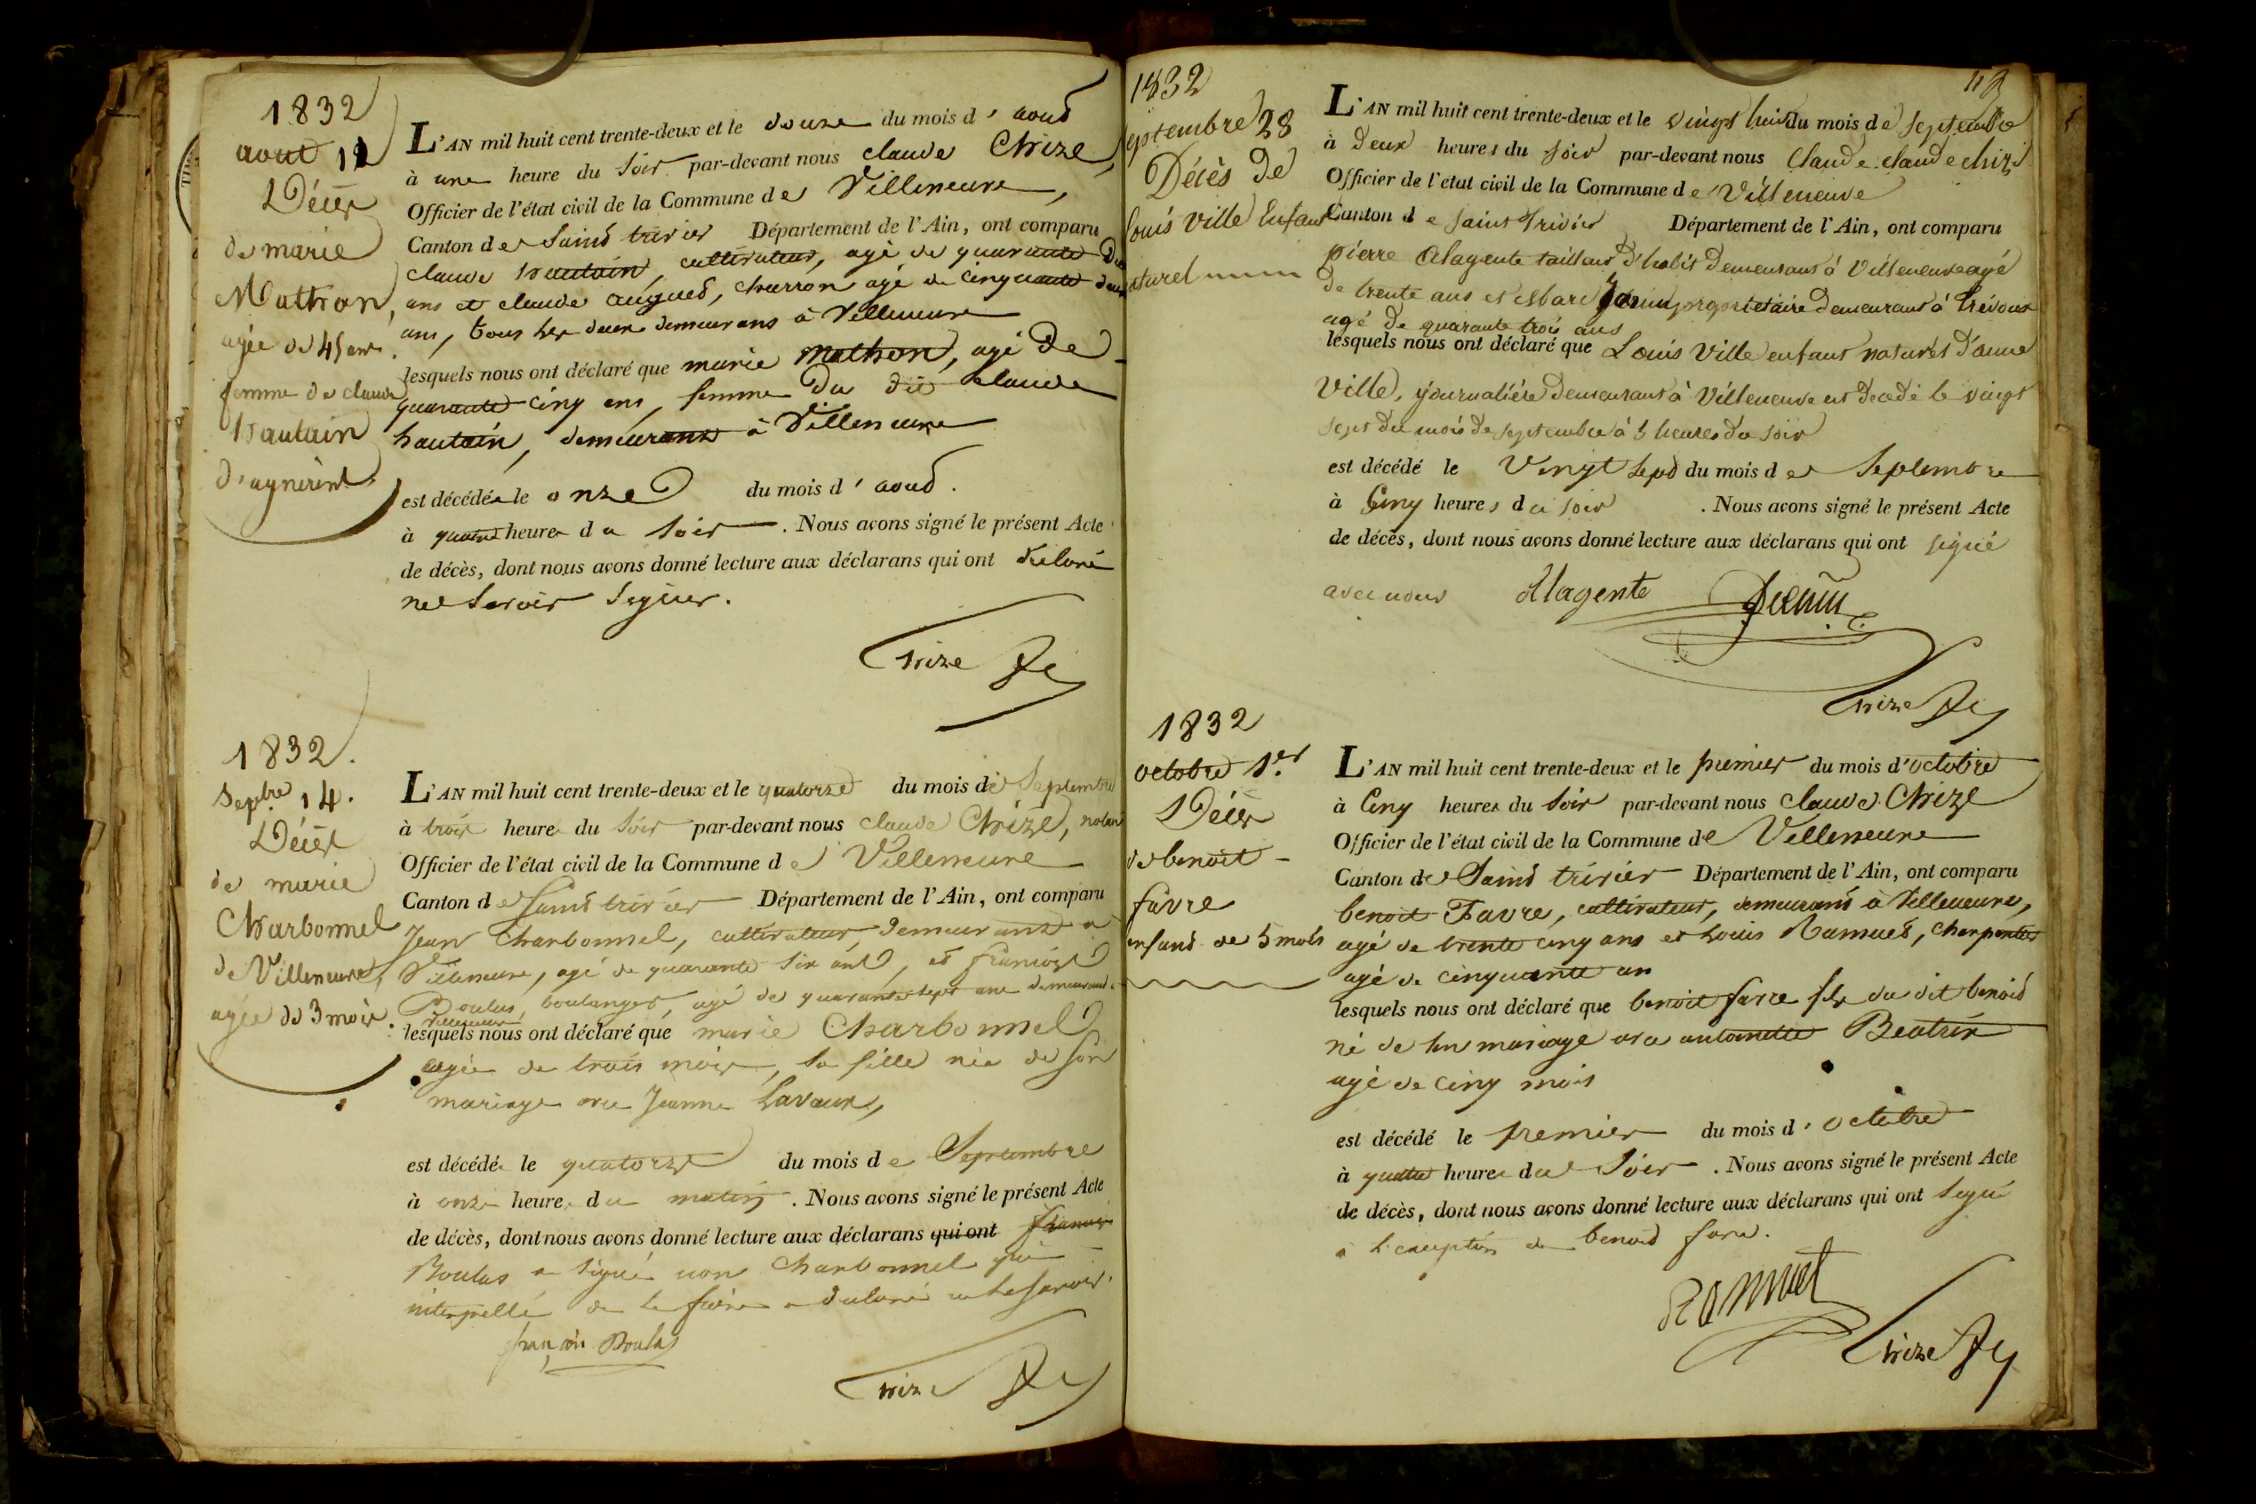 1832
aout 12
Décès
de marie
Mathon,
agée de 45 ans
femme de claude
hautain
d'agnereins
L'AN mil huit cent trente-deux et le douze du mois d' aout
à une heure du soir par-devant nous claude Chize,
Officier de l'état civil de la Commune de Villeneuve,
Canton de Saint trivier Département de l'Ain, ont comparu
claude hautain, cultivateur, agé de quarante
ans et claude augued, charron agé de cinquante deux
ans, tous les deux demeurans à Villeneuve
lesquels nous ont déclaré que marie Mathon, agé de
quarante cinq ans, femme du dit claude
hautain, demeurant à Villeneuve
est décédée le onze du mois d' aout.
à quatre heure du soir . Nous avons signé le présent Acte
de décès, dont nous avons donné lecture aux déclarans qui ont déclaré
ne savoir signer.
Chize
1832.
Septbre 14.
Décès
de marie
Charbonnel
de Villeneuve,
agée de 3 mois.
L'AN mil huit cent trente-deux et le quatorze du mois de Septembre
à trois heure du soir par-devant nous claude Chize,
Officier de l'état civil de la Commune de Villeneuve
Canton de Saint trivier Département de l'Ain, ont comparu
Jean Charbonnel, cultivateur, demeurant a
Villeneuve, agé de quarante six ans, et françois
Boulas, boulanger agé de quarante sept ans demeurant a
Villeneuve
lesquels nous ont déclaré que marie Charbonnel
agée de trois mois, sa fille née de son
mariage avec Jeanne Lavaux,
est décédée le quatorze du mois de Septembre
à onze heure du matin . Nous avons signé le présent Acte
de décès, dont nous avons donné lecture aux déclarans qui ont francois
Boulas a signé non Charbonnel qui
interpellé de le faire a déclaré ne le savoir.
françois Boulas
Chize
1832
Septembre 28
Décès de
Louis Ville Enfant
naturel
L'AN mil huit cent trente-deux et le vingt huit du mois de septembre
à deux heures du soir par-devant nous Claude claude chize
Officier de l'état civil de la Commune de Villeneuve
Canton de saint Trivier Département de l'Ain, ont comparu
pierre Alagente tailleur d'habit demeurant à Villeneuve agé
de trente ans et proprietaire demeurant à Trévoux
agé de quarante trois ans
lesquels nous ont déclaré que Louis Ville enfant naturel d'anne
Ville, journalière demeurant à Villeneuve est decedé le vingt
sept du mois de septembre à 5 heures du soir
est décédé le Vingt sept du mois de Septembre
à Cinq heures du soir . Nous avons signé le présent Acte
de décès, dont nous avons donné lecture aux déclarans qui ont signé
avec nous Alagente
Chize
1832
octobre 1.er
Décès
de benoit
favre
enfant de 5 mois
L'AN mil huit cent trente-deux et le premier du mois d'octobre
à Cinq heures du soir par-devant nous claude Chize
Officier de l'état civil de la Commune de Villeneuve
Canton de Saint trivier Département de l'Ain, ont comparu
benoit Favre, cultivateur, demeurant à Villeneuve,
agé de trente cinq ans et Louis Ramuet, Charpentier
agé de cinquante un
lesquels nous ont déclaré que benoit favre fils du dit benoid
né de son mariage avec antoinette Beatrix
agé de cinq mois
est décédé le premier du mois d' octobre
à quatre heure du soir . Nous avons signé le présent Acte
de décès, dont nous avons donné lecture aux déclarans qui ont signé
à l'exception de benoid favre.
Ramuet
Chize